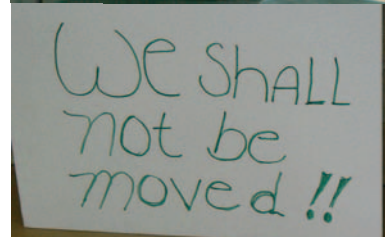 We ShALL
not be
moved!!